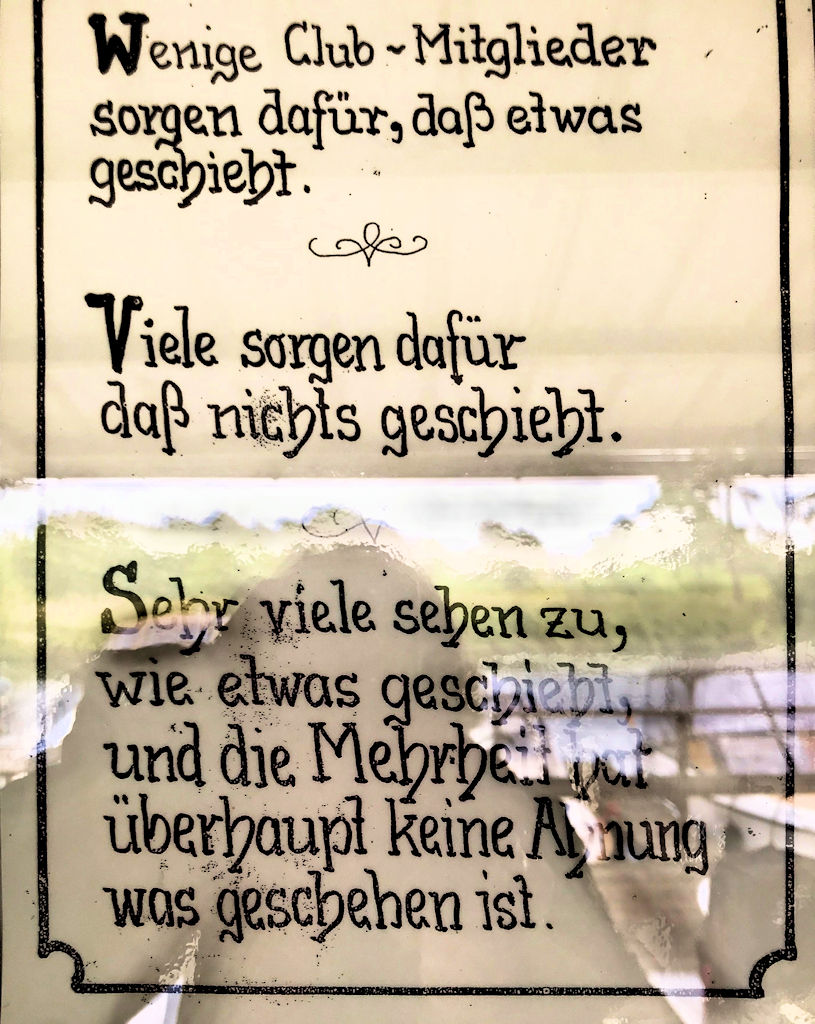 Wenige Club-Mitglieder
sorgen dafür, daß etwas
geschieht.
Viele sorgen dafür
daß nichts geschieht.
Sehr viele sehen zu,
wie etwas geschieht,
und die Mehrheit hat
überhaupt keine Ahnung
was geschehen ist.